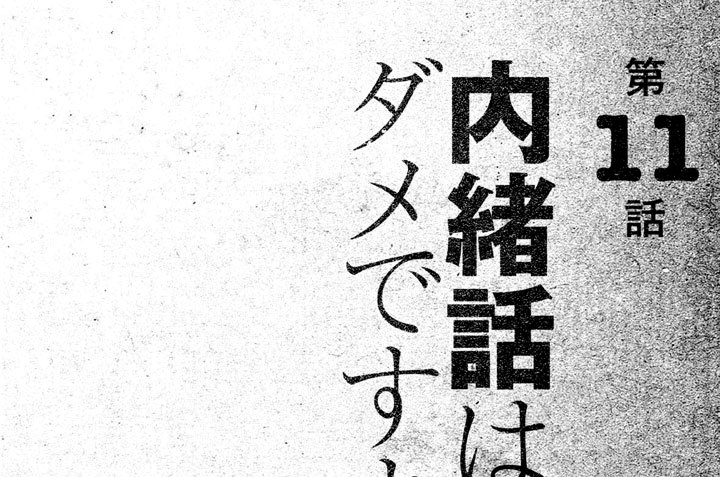 第11話
内緒話は
ダメです